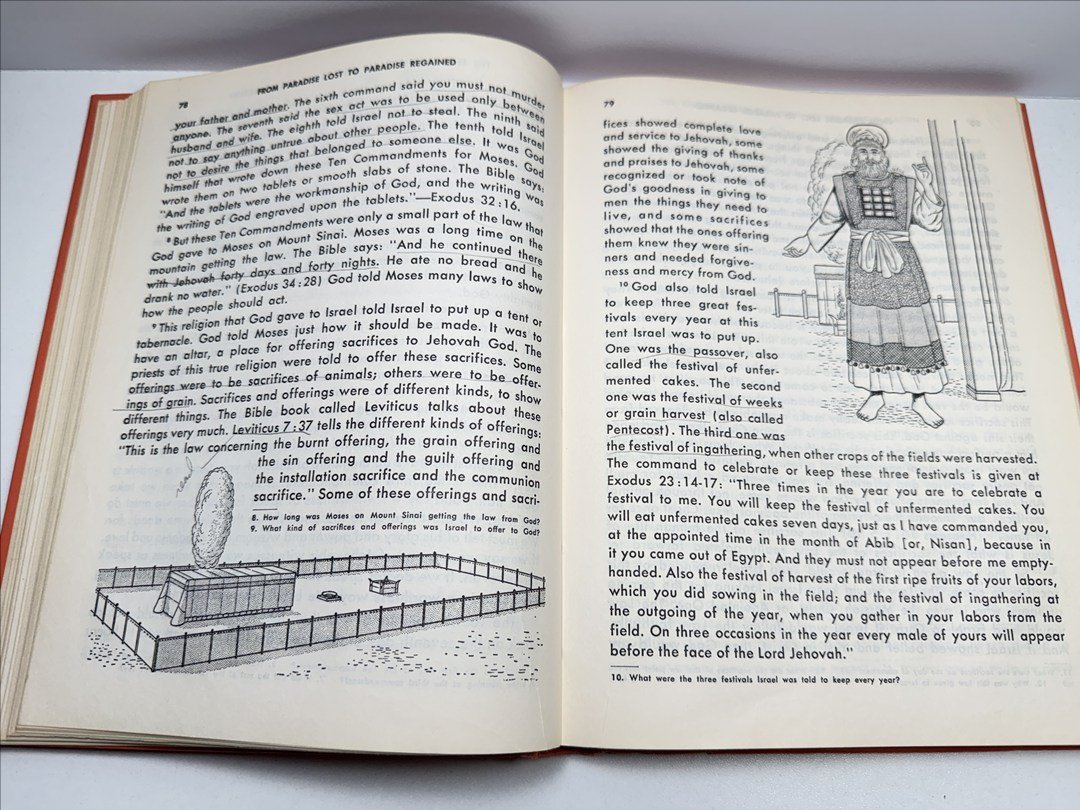 78
FROM PARADISE LOST TO PARADISE REGAINED
your father and mother. The sixth command said you must not murder
anyone. The seventh said the sex act was to be used only between
husband and wife. The eighth told Israel not to steal. The ninth said
not to say anything untrue about other people. The tenth told Israel
not to desire the things that belonged to someone else. It was God
himself that wrote down these Ten Commandments for Moses. God
wrote them on two tablets or smooth slabs of stone. The Bible says:
"And the tablets were the workmanship of God, and the writing was
the writing of God engraved upon the tablets."—Exodus 32:16.
8 But these Ten Commandments were only a small part of the law that
God gave to Moses on Mount Sinai. Moses was a long time on the
mountain getting the law. The Bible says: "And he continued there
with Jehovah forty days and forty nights. He ate no bread and he
drank no water." (Exodus 34:28) God told Moses many laws to show
how the people should act.
9 This religion that God gave to Israel told Israel to put up a tent or
tabernacle. God told Moses just how it should be made. It was to
have an altar, a place for offering sacrifices to Jehovah God. The
priests of this true religion were told to offer these sacrifices. Some
offerings were to be sacrifices of animals; others were to be offer-
ings of grain. Sacrifices and offerings were of different kinds, to show
different things. The Bible book called Leviticus talks about these
offerings very much. Leviticus 7:37 tells the different kinds of offerings:
"This is the law concerning the burnt offering, the grain offering and
the sin offering and the guilt offering and
the installation sacrifice and the communion
sacrifice." Some of these offerings and sacri-
read
8. How long was Moses on Mount Sinai getting the law from God?
9. What kind of sacrifices and offerings was Israel to offer to God?
79
fices showed complete love
and service to Jehovah, some
showed the giving of thanks
and praises to Jehovah, some
recognized or took note of
God's goodness in giving to
men the things they need to
live, and some sacrifices
showed that the ones offering
them knew they were sin-
ners and needed forgive-
ness and mercy from God.
10 God also told Israel
to keep three great fes-
tivals every year at this
tent Israel was to put up.
One was the passover, also
called the festival of unfer-
mented cakes. The second
one was the festival of weeks
or grain harvest (also called
Pentecost). The third one was
the festival of ingathering, when other crops of the fields were harvested.
The command to celebrate or keep these three festivals is given at
Exodus 23:14-17: "Three times in the year you are to celebrate a
festival to me. You will keep the festival of unfermented cakes. You
will eat unfermented cakes seven days, just as I have commanded you,
at the appointed time in the month of Abib [or, Nisan], because in
it you came out of Egypt. And they must not appear before me empty-
handed. Also the festival of harvest of the first ripe fruits of your labors,
which you did sowing in the field; and the festival of ingathering at
the outgoing of the year, when you gather in your labors from the
field. On three occasions in the year every male of yours will appear
before the face of the Lord Jehovah."
10. What were the three festivals Israel was told to keep every year?